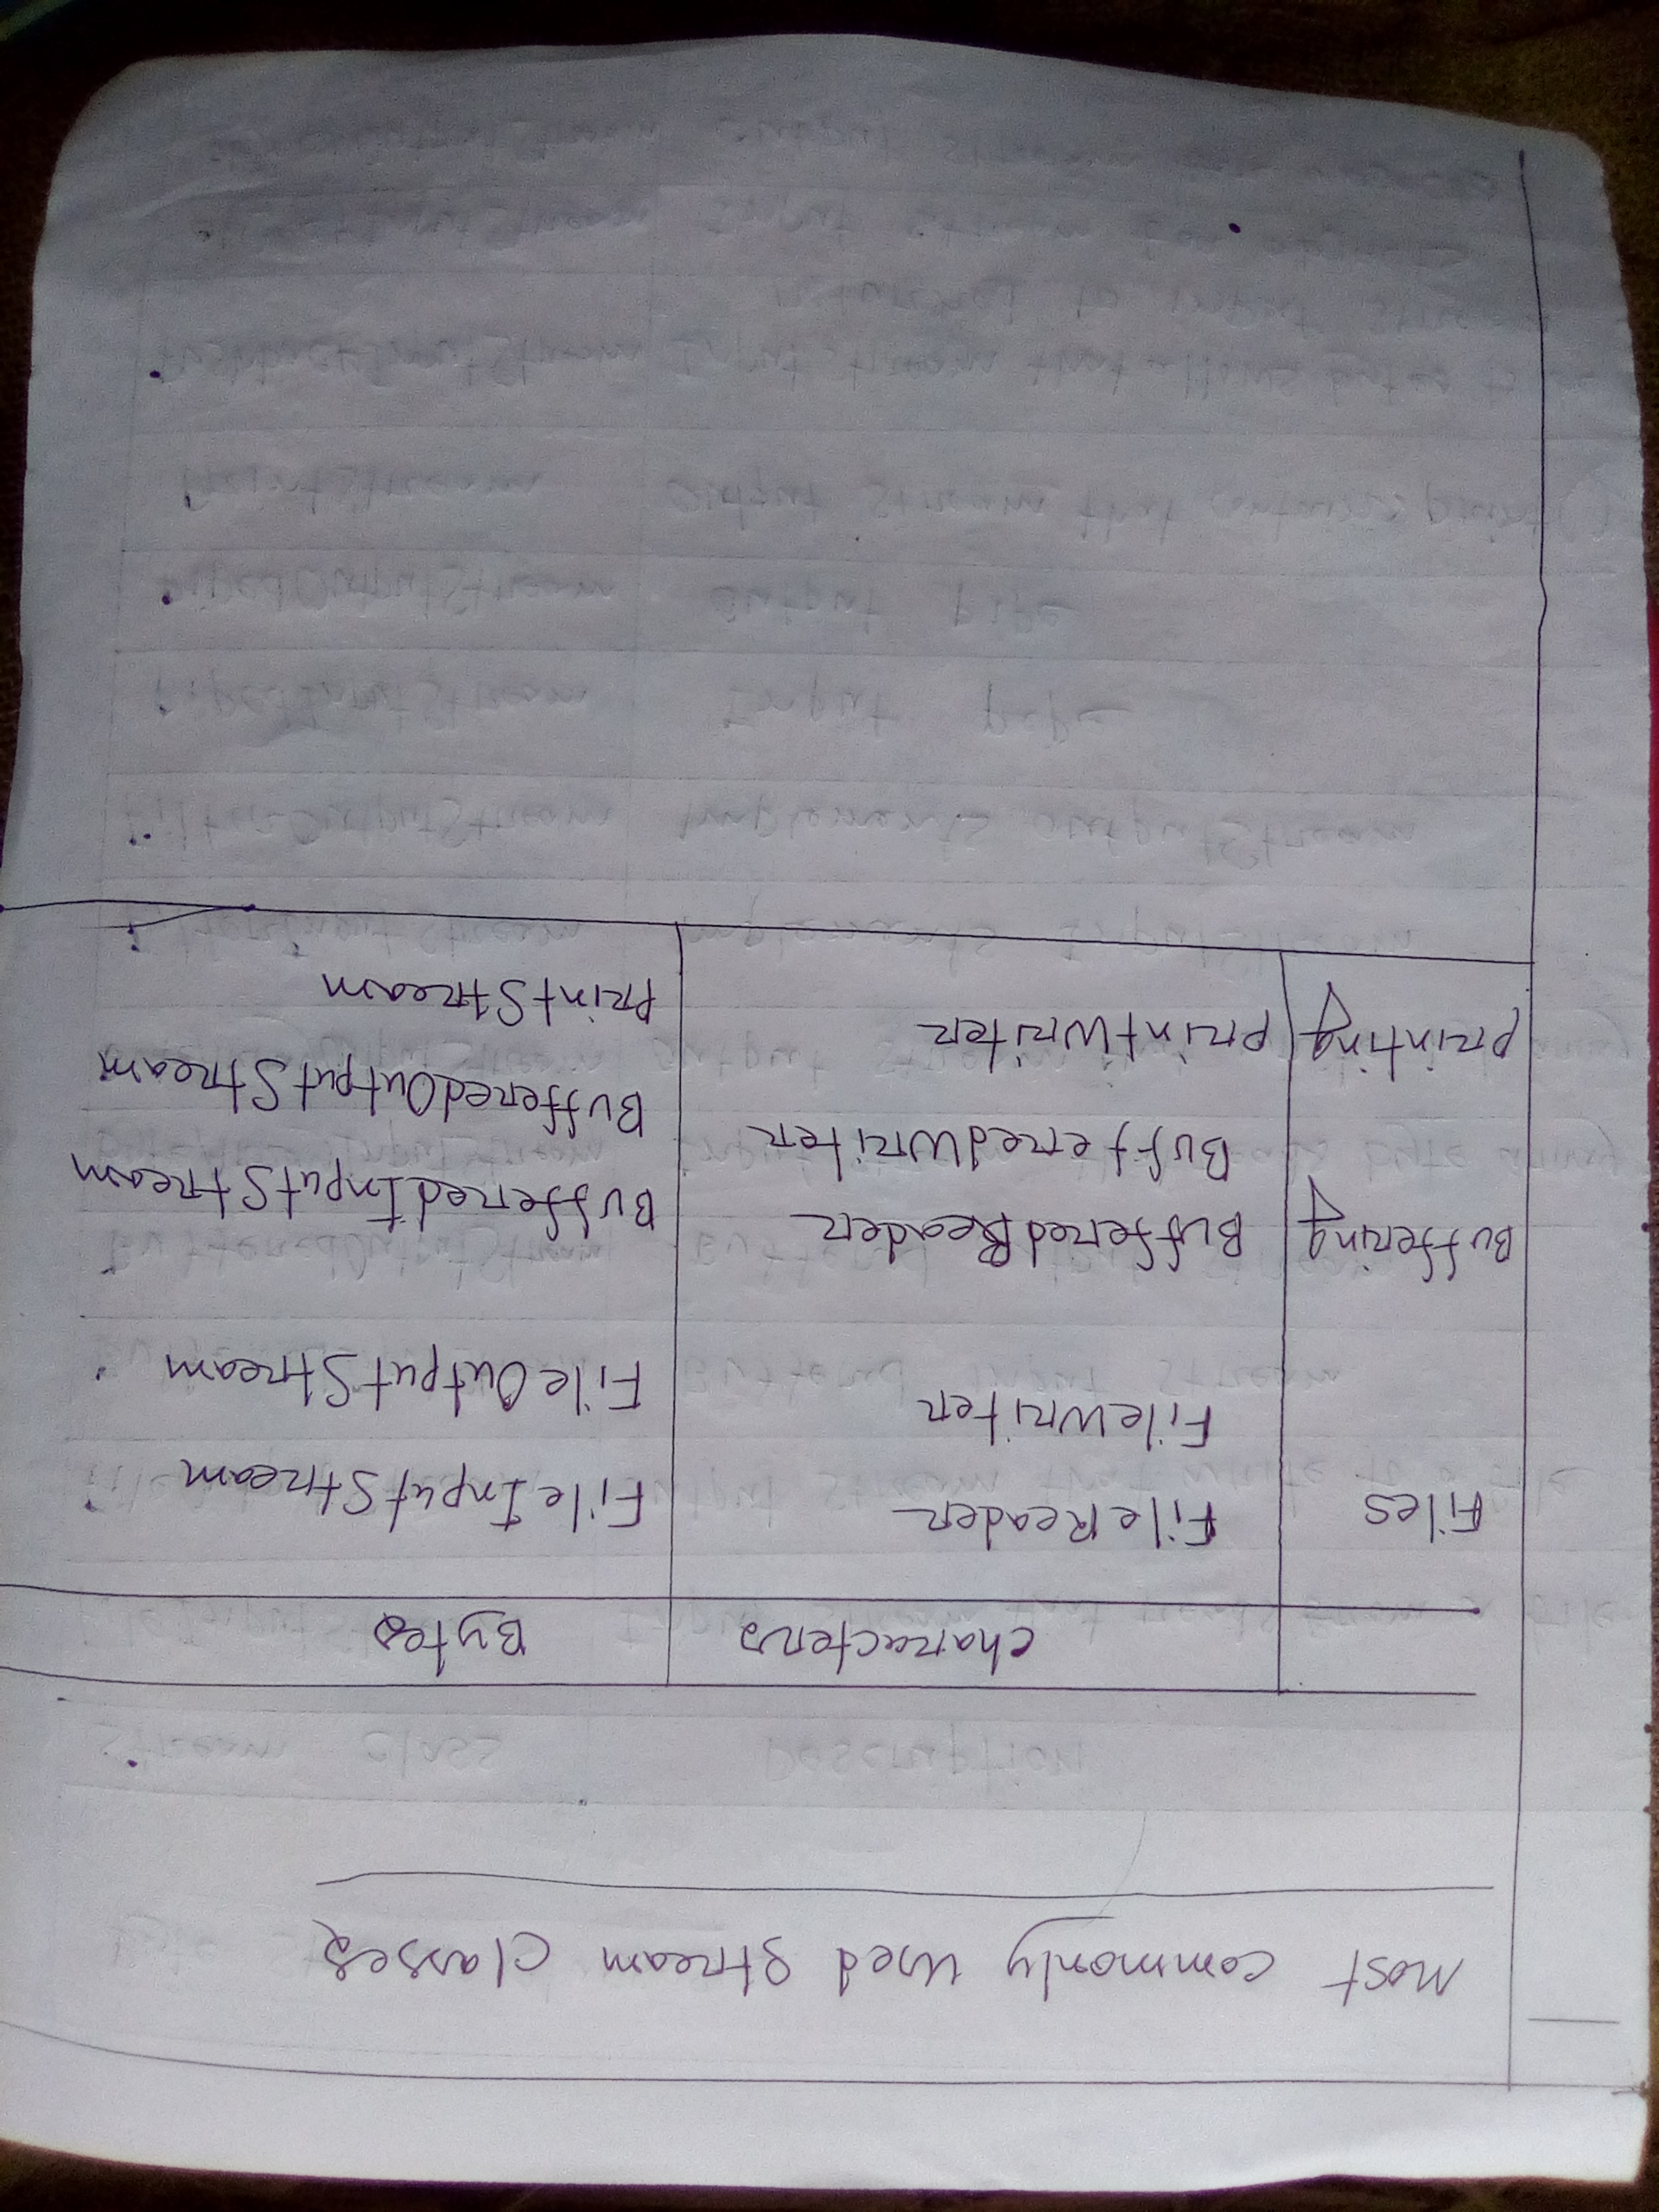 Most commonly used stream classes
characters Bytes
Files FileReader FileInputStream
FileWriter FileOutputStream
Buffering BufferedReader BufferedInputStream
BufferedWriter BufferedOutputStream
printing printWriter PrintStream